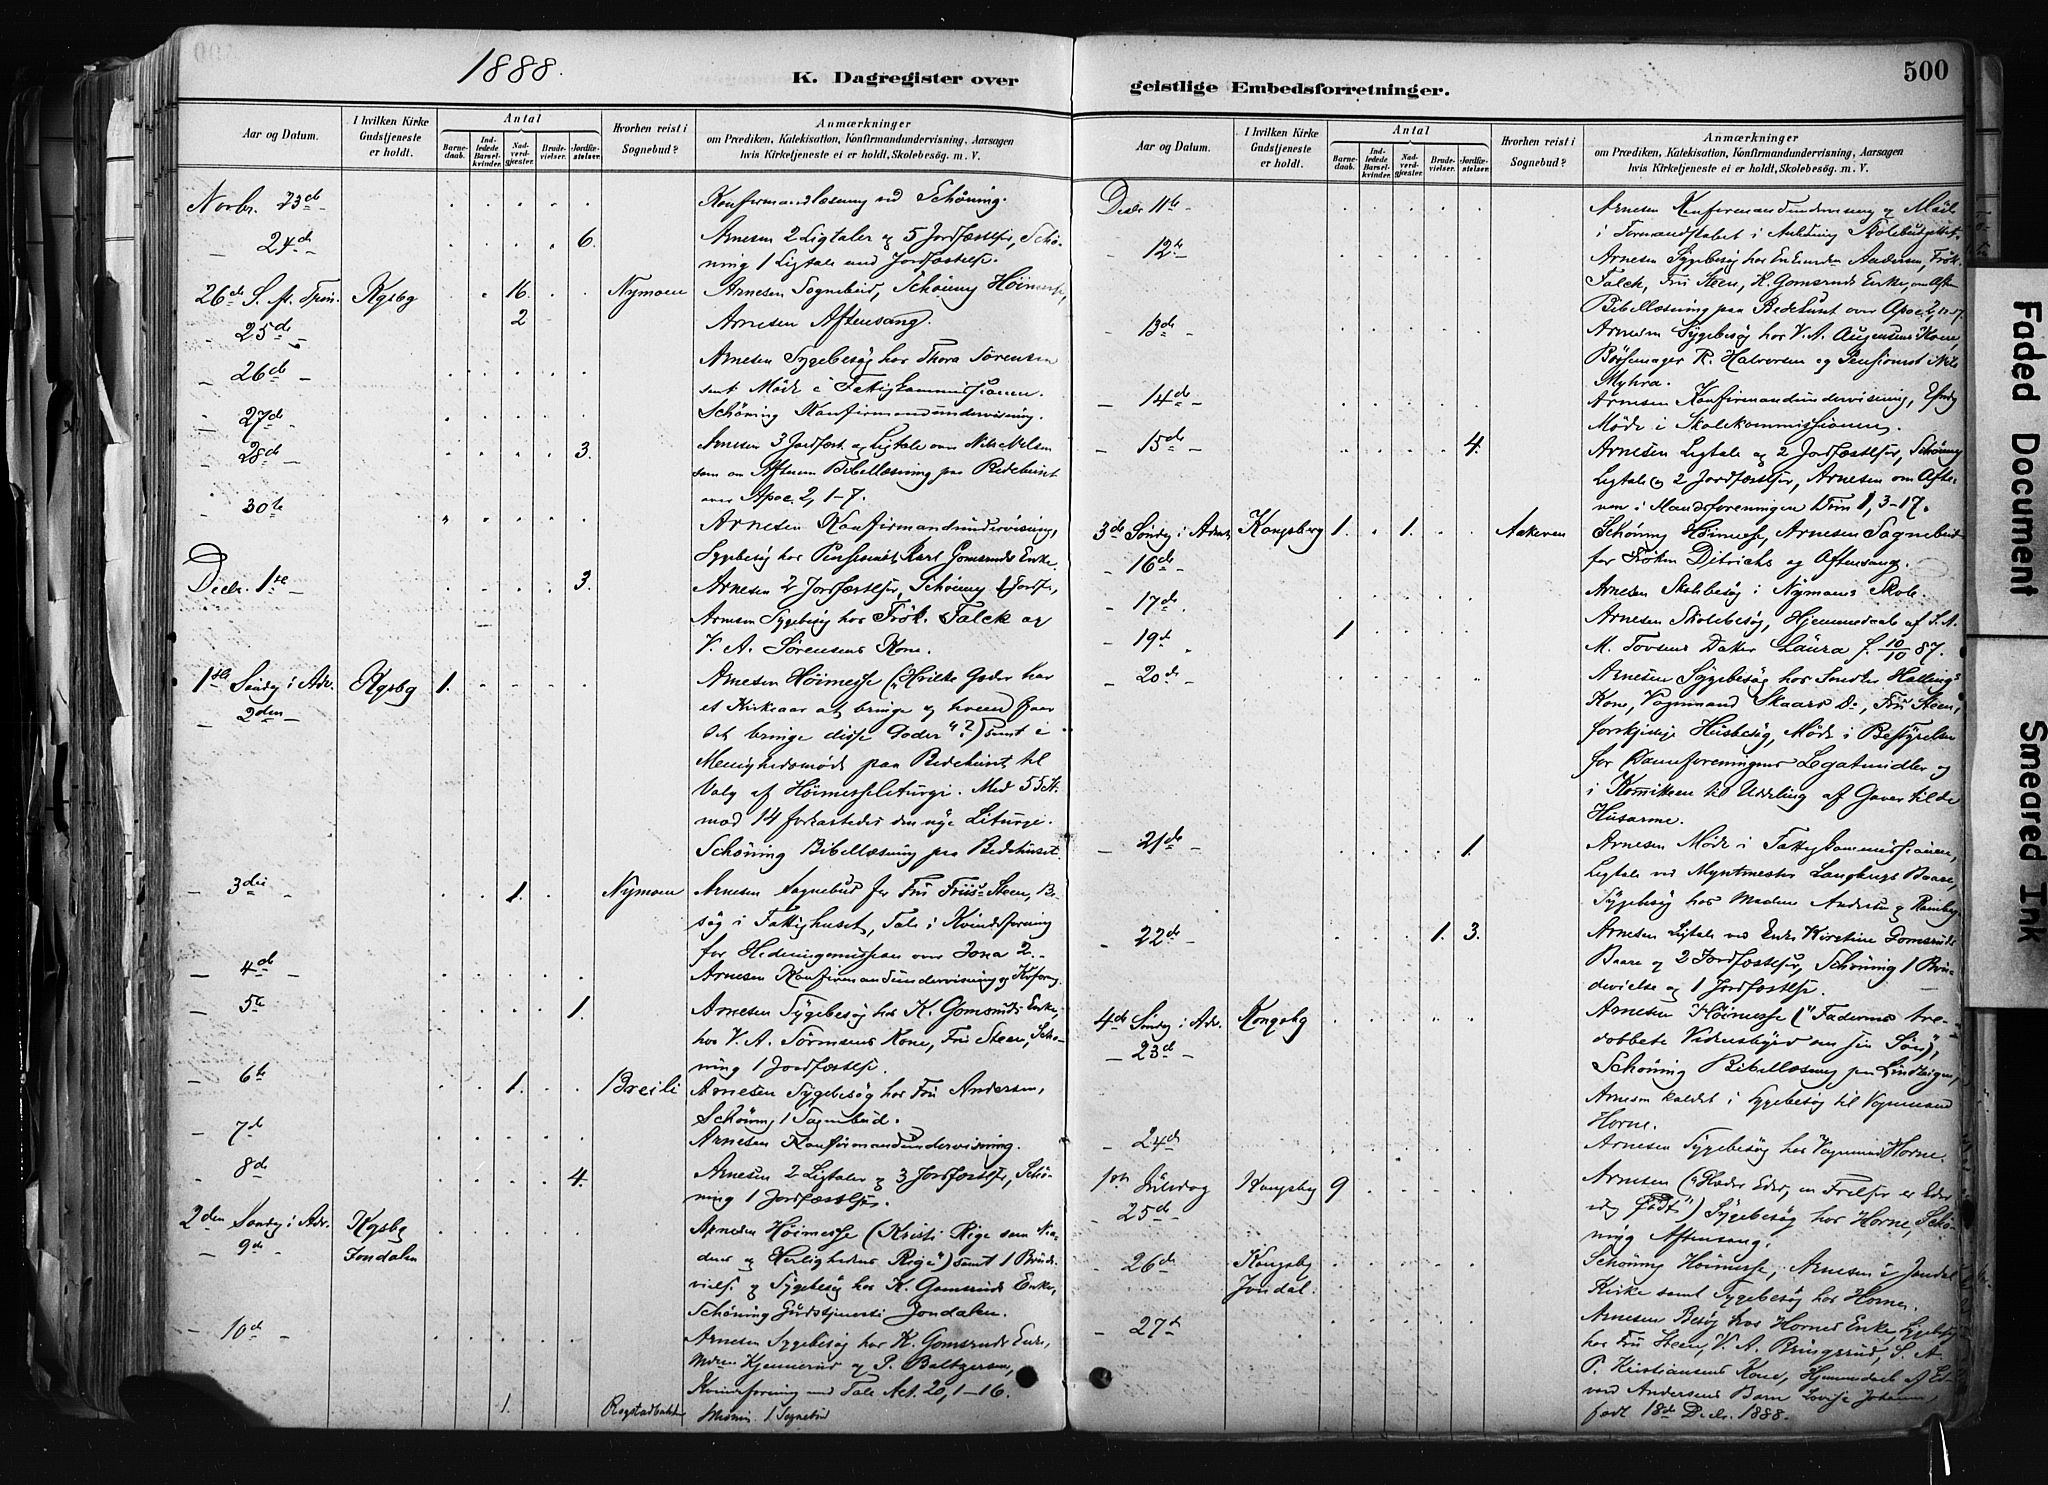 1888.
K. Dagregister over
Aar og Datum.
I hvilken Kirke Gudstjeneste er holdt.
Antal
Barne-daab.
Ind-ledede Barsel-kvinder.
Nad-verd-gjester.
Brude-vielser.
Jordfæ-stelser.
Hvorhen reist i Sognebud?
Anmærkninger
om Prædiken, Katekisation, Konfirmandundervisning, Aarsagen
hvis Kirketjeneste ei er holdt, Skolebesøg. m. V.
Novbr. 23de Konfirmandlæsning ved Schöning.
24de 6. Arnesen 2 Ligtaler og 5 Jordfæstelser, Schö-
ning 1 Ligtale med Jordfæstelse.
26de S. p. Trin. Kgsbg 16. Nymoen Arnesen Sognebud, Schöning Höimesse,
25de 2 Arnesen Aftensang.
26de Arnesen Sygebesög hos Thora Sörensen
samt Möde i Fattigkommissionen.
27de Schöning Konfirmandundervisning.
28de 3. Arnesen 3 Jordfæst. og Ligtale over Nils Nilsen
som om Aftenen Bibellæsning paa Bedehuset
over Apoc. 2, 1-7.
30te Arnesen Konfirmandundervisning,
Sygebesög hos Karl Gomsruds Enke.
Decbr. 1ste 3. Arnesen 2 Jordfæstelser, Schöning 1 Jordf.,
Arnesen Sygebesög hos Frök. Falck og
V. A. Sörensens Kone.
1ste Söndg i Adv. Kgsbg 1. Arnesen Höimesse ("Hvilke Goder har
2den et Kirkeaar at bringe og hvem faar
det bringe disse Goder"?) samt i
Menighedsmöde paa Bedehuset til
Valg af Höimesseliturgi. Med 55 St.
mod 14 forkastedes den nye Liturgi.
Schöning Bibellæsning paa Bedehuset.
3die 1. Nymoen Arnesen Sognebud for Fru Friis-Steen, Be-
søg i Fattighuset, Tale i Kvindeforening
for Hedningemissionen over Jona 2.
4de Arnesen Konfirmandundervisning og
5te 1. Arnesen Sygebesög hos K. Gomsruds Enke,
hos V. A. Sörensens Kone, Fru Steen, Schö-
ning 1 Jordfæstelse.
6te 1. Breili Arnesen Sygebesög hos Fru Andersen,
Schöning 1 Sognebud.
7de Arnesen Konfirmandundervisning.
8de 4. Arnesen 2 Ligtaler og 3 Jordfæstelser, Schö-
ning 1 Jordfæstelse.
2den Söndg i Adv. Kgsbg Arnesen Höimesse (Kristi Rige som Naa-
9de Jondalen dens og Herlighedens Rige") samt 1 Brude-
vielse og Sygebesög hos K. Gomsruds Enke,
Schöning Gudstjeneste i Jondalen.
10de Arnesen Sygebesög hos K. Gomsruds Enke,
Kjennerud og P. Baltzersen,
Kvindeforening med Tale Act. 20, 1-16.
1. 1 Sognebud
geistlige Embedsforretninger.
500
Aar og Datum.
I hvilken Kirke Gudstjeneste er holdt.
Antal
Barne-daab.
Ind-ledede Barsel-kvinder.
Nad-verd-gjester.
Brude-vielser.
Jordfæ-stelser.
Hvorhen reist i Sognebud?
Anmærkninger
om Prædiken, Katekisation, Konfirmandundervisning, Aarsagen
hvis Kirketjeneste ei er holdt, Skolebesøg. m. V.
Decbr. 11te Arnesen Konfirmandundervisning og Möde
i Formandskabet i Anledning Skolebudgettet.
12te Arnesen Sygebesög hos Andersen, Frök.
Falck, Fru Steen, K. Gomsruds Enke, om Aften
Bibellæsning paa Bedehuset over Apoc. 2,
13de Arnesen Sygebesög hos V. A. Augensens Kone,
Bössemager R. Halvorsen og Nils
Myhra.
14de Arnesen Konfirmandundervisning,
Möde i Skolekommissionen.
15de 4. Arnesen Ligtale og 2 Jordfæstelser, Schöning
Ligtale og 2 Jordfæstelser, Arnesen om Afte-
nen i Mandsforeningen 1, 3-17.
3de Söndg i Advent Kongsberg 1. 1. Schöning Höimesse, Arnesen Sognebud
16de for Fröken Ditrichs og Aftensang.
17de Arnesen Skolebesög i Nymoens Skole.
19de 1 Arnesen Skolebesög, Hjemmedaab af
M. Tovsens Datter Laura f. 10/10 87.
20de Arnesen Sygebesög hos Hallings
Kone, Vognmand Skaars Do, Fru Steen,
forskjellige Husbesög, Möde i Bestyrelsen
for Legatmidler og
i Komitteen til Uddeling af Gaver til de
Husarme.
21de 1. Arnesen Möde i Fattigkommissionen,
Ligtale ved Myntmester Langbergs Baare,
Sygebesög hos Madam Andersen og
22de 1. 3. Arnesen Ligtale ved Enke Kirstine Gomsruds
Baare og 2 Jordfæstelser, Schöning 1 Bru-
devielse og 1 Jordfæstelse.
4de Söndg i Adv. Kongsbg Arnesen Höimesse ("Faderens tre-
23de dobbete Vidnesbyrd om sin Sön"),
Schöning Bibellæsning paa
Arnesen kaldet i Sygebesög til Vognmand
Horne.
24de Arnesen Sygebesög hos Vognmand Horne.
1ste Juledag Kongsbg 9 Arnesen ("Glæder Eder, en Frelser er Eder
25de idag födt") Sygebesög hos Horne, Schö-
ning Aftensang.
26de Kongsbg Schöning Höimesse, Arnesen i Jondal
Jondal. Kirke samt Sygebesög hos Horne.
27de Arnesen Besög hos Hornes Enke, Sygebesög
hos Fru Steen, V. A. Bringsrud, S. A.
P. Kristiansens Kone, Hjemmedaab af Ed-
vard Andersens Barn Lovise Johanne,
født 18de Decbr. 1888.
Faded Document
Smeared Ink